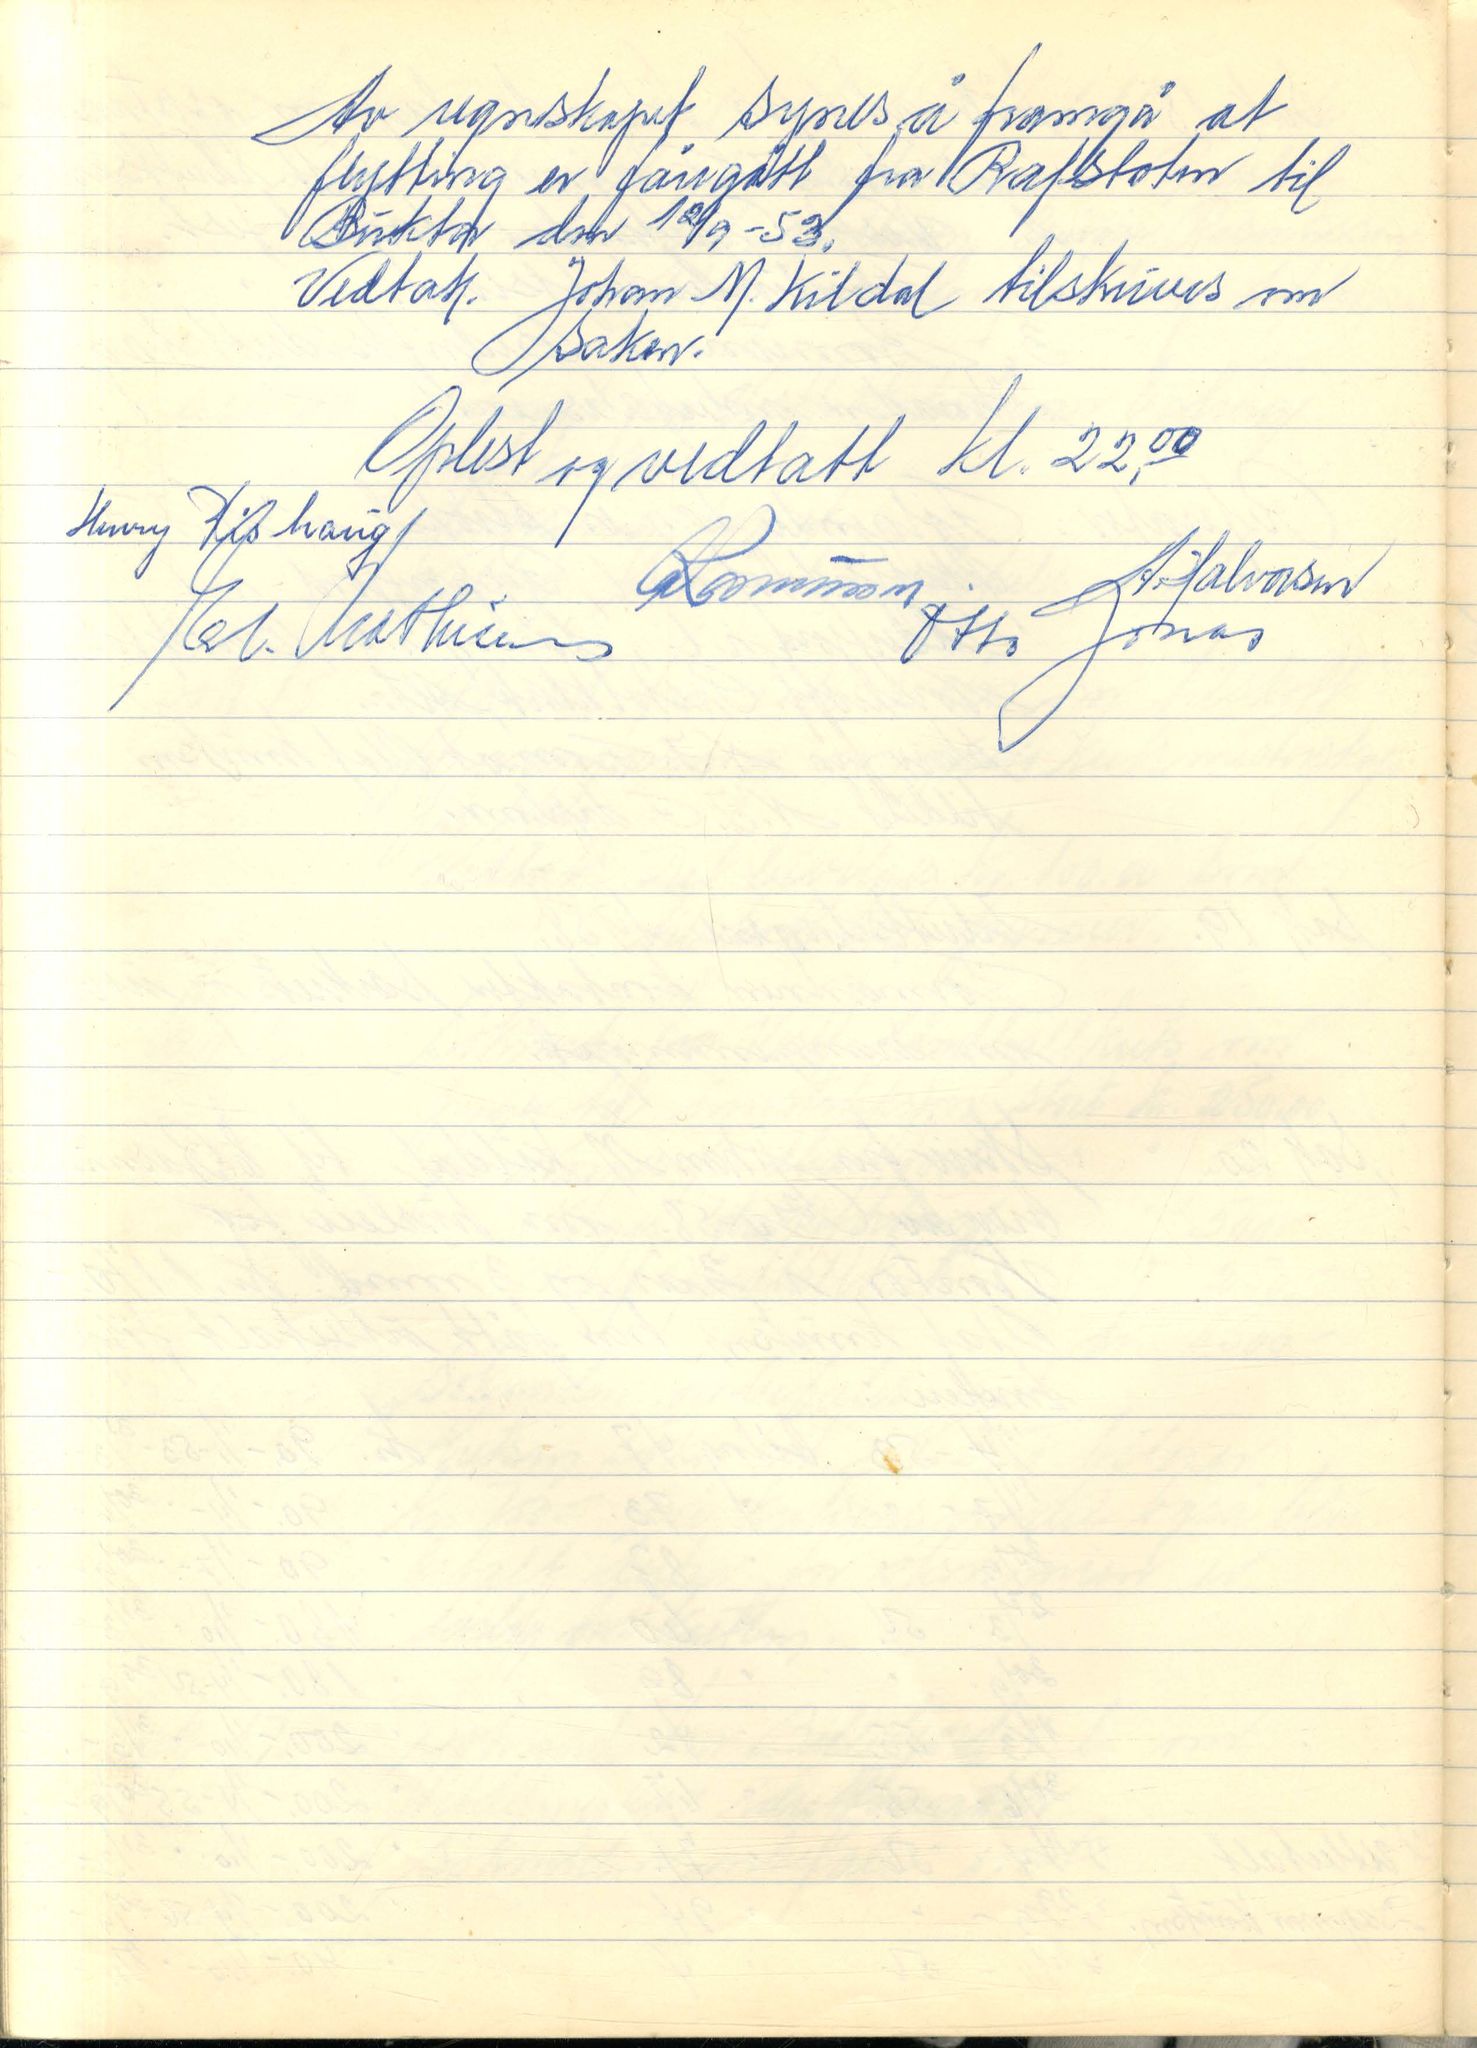 Av regnskapet synes å framgå at
flytting er fåregått fra Rafsbotn til
Bukta den 12/9-53.
Vedtak. Johan M. Kildal tilskrives om
saken.
Oplest og vedtatt kl. 22,00
Henry
A. Halvorsen
Mathisen Otto Jonas